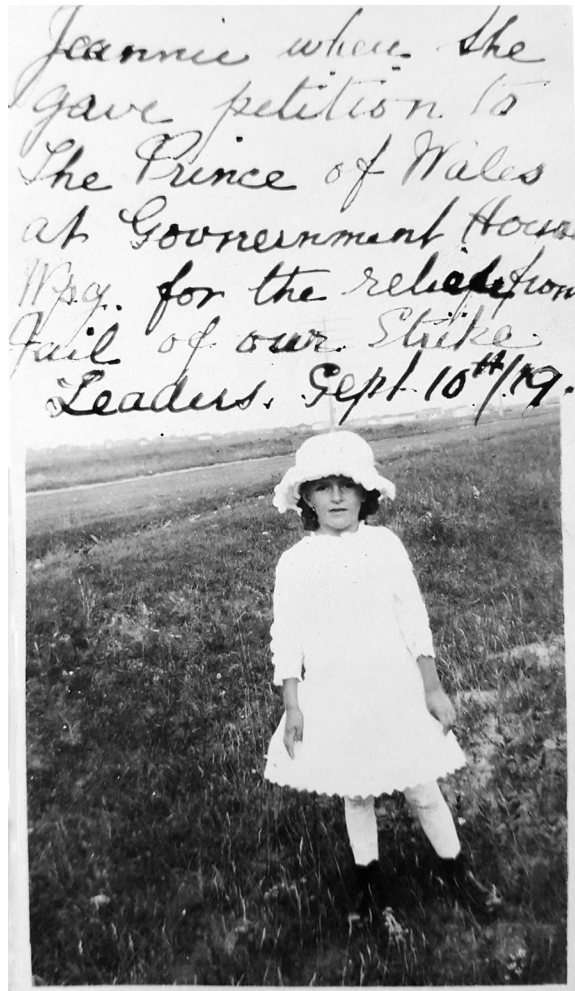 Jeannie when she
gave petition to
The Prince of Wales
at Govnernment House
Wpg. for the from
Jail of our Strike
Leaders. Sept 10th/19.